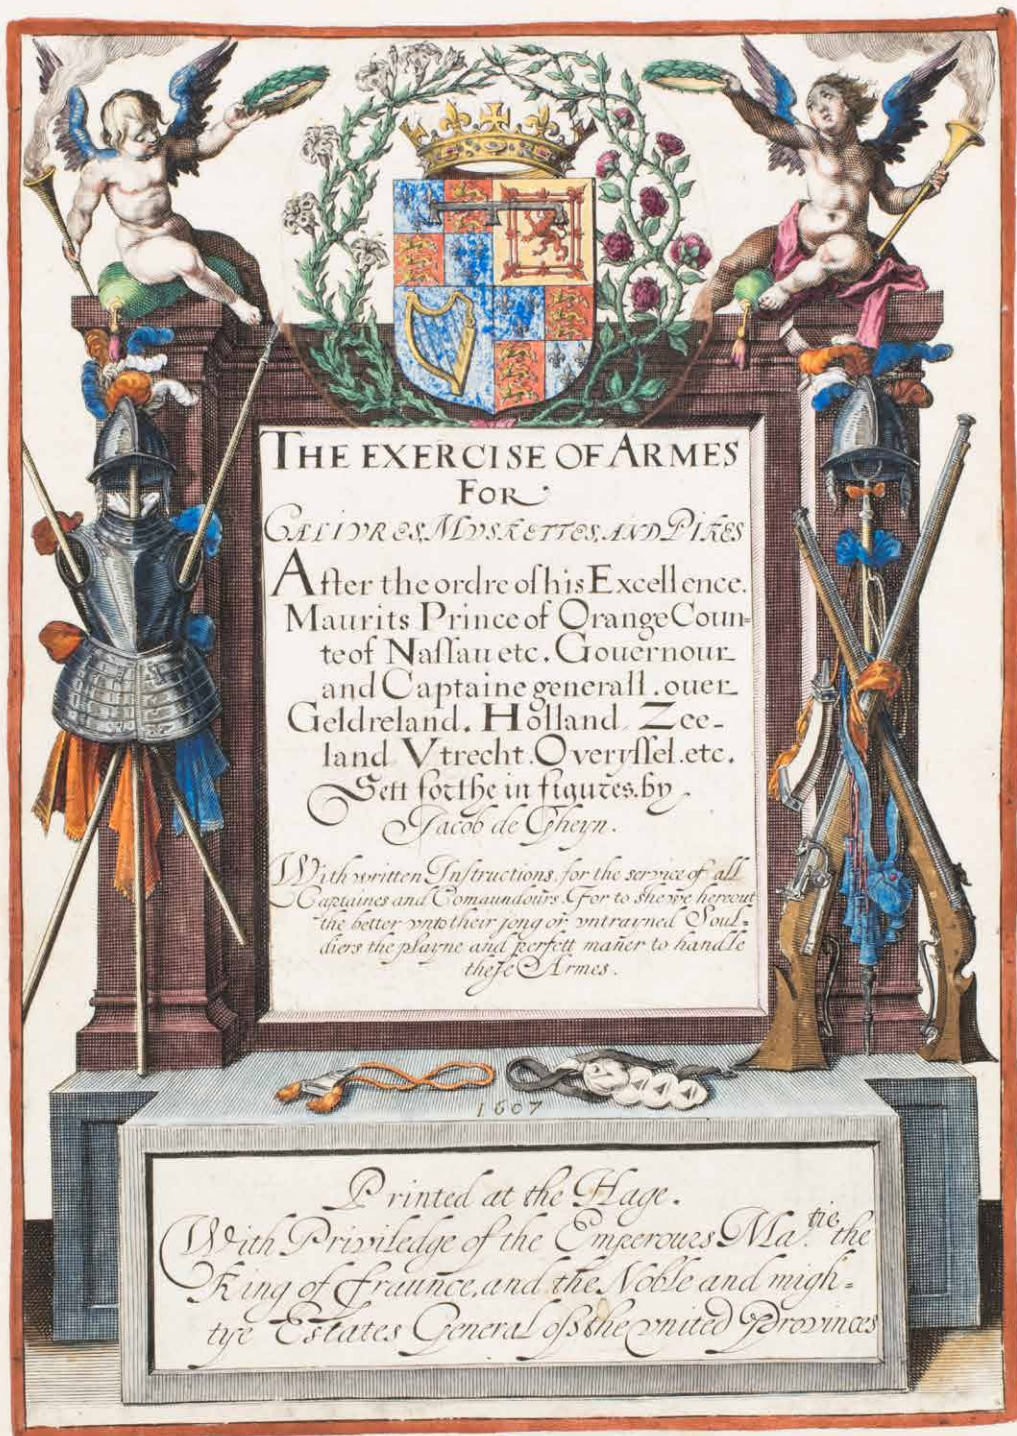 THE EXERCISE OF ARMES
FOR
CALIVRES, MVSKETTES, AND PIKES
After the ordre of his Excellence.
Maurits Prince of Orange Coun=
te of Naſſau etc. Gouernour
and Captaine generall. ouer
Geldreland. Holland Zee-
land Vtrecht. Overyſſel. etc.
Sett forthe in figures. by
Jacob de Gheyn.
With written Instructions. for the service of all
Captaines and Comaundours. For to shewe hereout
the better vnto their jong or vntrayned Soul=
diers the playne and perfett maner to handle
theſe Armes.
1607
Printed at the Hage.
With Priviledge of the Emperours Ma.tie, the
King of fraunce, and the Noble and migh=
tye Estates General of the vnited Provinces